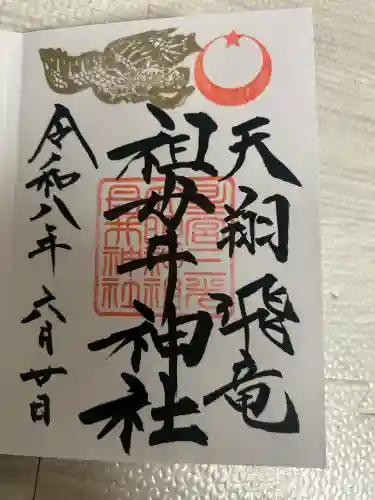 天翔飛竜
祖母井神社
令和八年 六月廿日